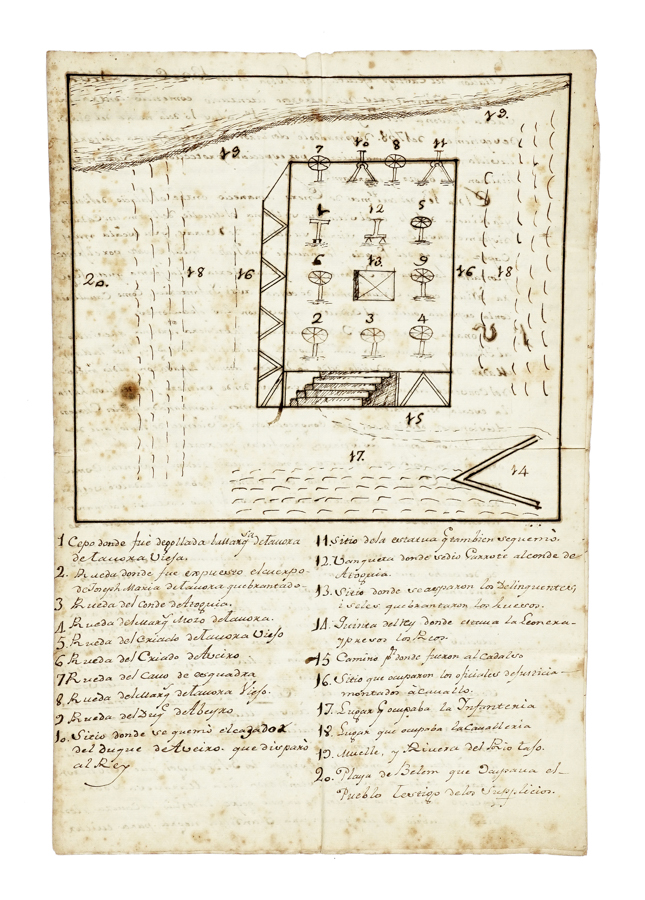 19.
7
10
8
11
19
1
12
5
20.
18
16
6
13.
9
16
18
2
3
4
15
17.
14
1 Cepo donde fue degollada la Marq.sa de Tavora
de Tavora Viexa.
2. Rueda donde fue expuesto el cuerpo
de Joseph Maria de Tavora quebrantado.
3 Rueda del Conde de Atoguia.
4 Rueda del Marq.s Mozo de Tavora.
5. Rueda del Criado de Tavora Viejo
6 Rueda del Criado de Aveiro
7 Rueda del Cavo de esquadra
8 Rueda del Marq.s de Tavora Viejo.
9 Rueda del Duq.e de Abeyro
10. Sitio donde se quemò el cazador
del Duque de Aveiro. que disparò
al Rey
11. Sitio de la estatua q tambien se quemò.
12. Banqueta donde se dio Garrote al conde de
Atoguia.
13. Sitio donde se asparon los Delinquentes,
i se les quebrantaron los huesos.
14. Quinta del Rey donde estava la Leonera
y presos los Reos.
15 Camino p.r donde fueron al cadalso
16. Sitio que ocuparon los oficiales de justicia
montados à Cavallo.
17. Lugar q ocupaba la Infanteria
18. Lugar que ocupaba la Cavalleria
19. Muelle, y Rivera del Rio Tajo.
20. Playa de Belem que Ocupava el
Pueblo testigo de los Supplicios.